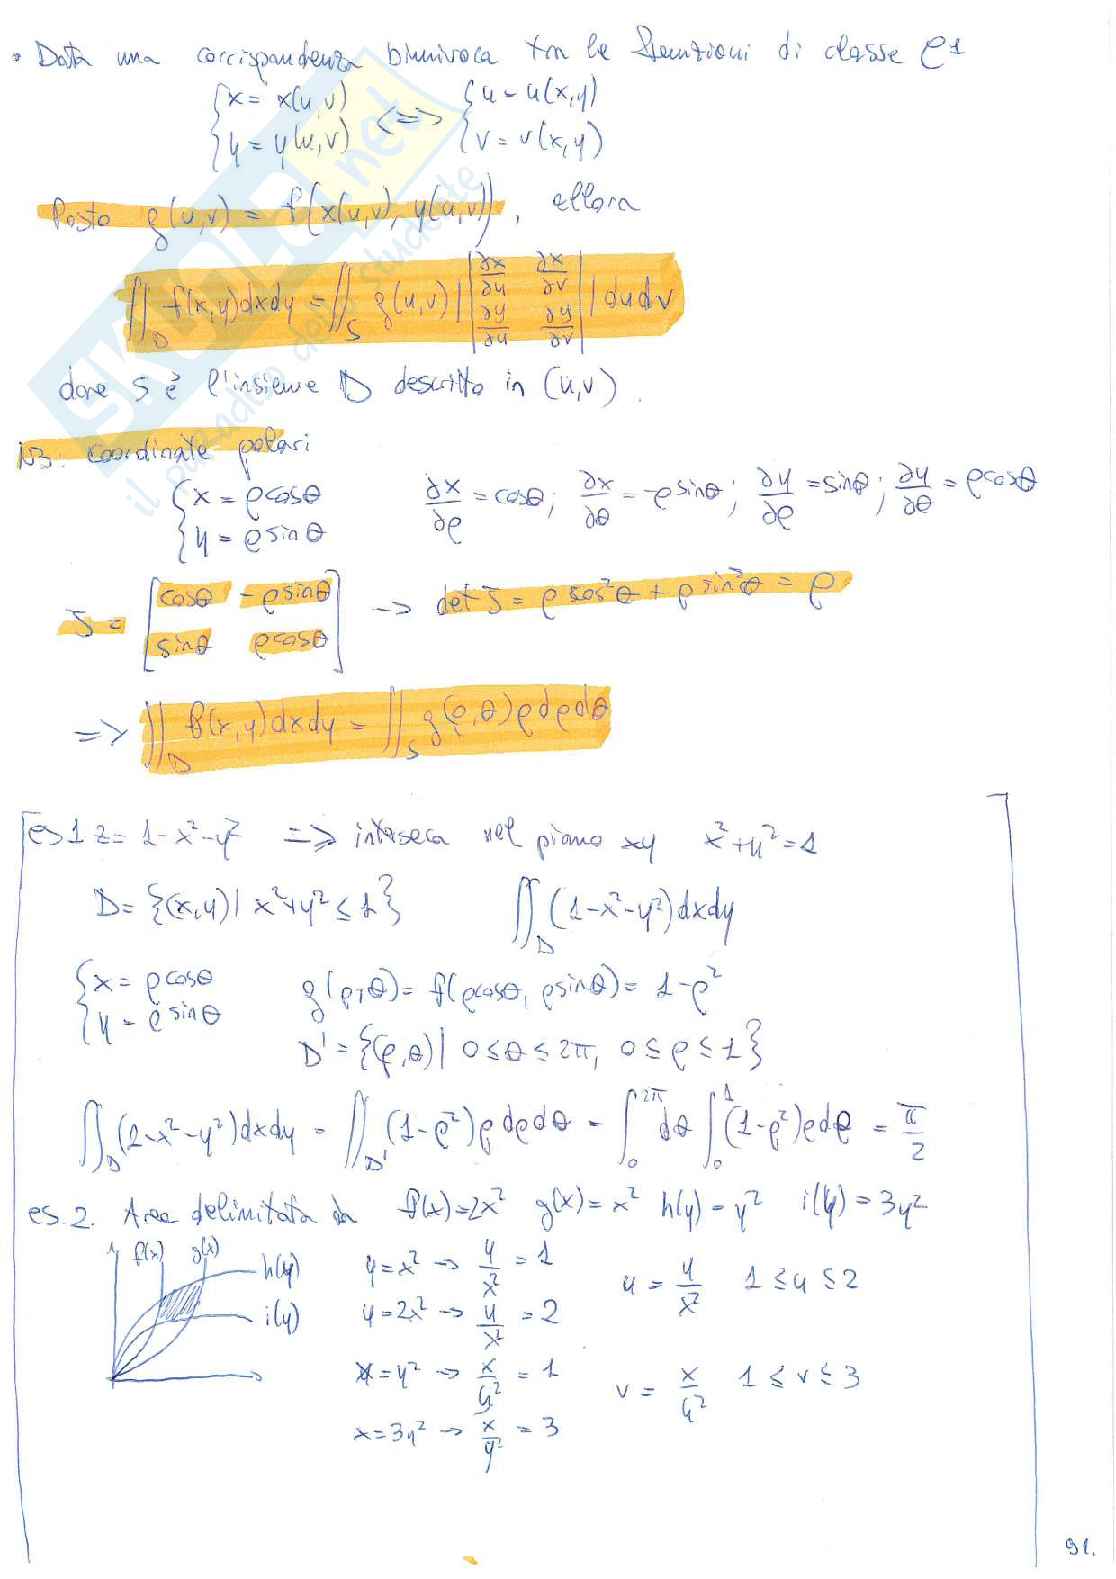 • Data una corrispondenza biunivoca tra le funzioni di classe C1
{x = x(u,v) <=> {u = u(x,y)
{y = y(u,v) {v = v(x,y)
Posto g(u,v) = f(x(u,v), y(u,v)), allora
∬_D f(x,y)dxdy = ∬_S g(u,v) | |∂x/∂u ∂x/∂v ∂y/∂u ∂y/∂v| | dudv
dove S è l'insieme D descritto in (u,v).
NB: coordinate polari
{x = ρcosθ ∂x/∂ρ = cosθ; ∂x/∂θ = -ρsinθ; ∂y/∂ρ = sinθ; ∂y/∂θ = ρcosθ
{y = ρsinθ
J = [cosθ -ρsinθ -> det J = ρcos²θ + ρsin²θ = ρ
sinθ ρcosθ]
=> ∬_D f(x,y)dxdy = ∬_S g(ρ,θ)ρdρdθ
es1 z = 1-x²-y² => interseca nel piano xy x²+y²=1
D = {(x,y)| x²+y² ≤ 1} ∬_D (1-x²-y²)dxdy
{x = ρcosθ g(ρ,θ) = f(ρcosθ, ρsinθ) = 1-ρ²
{y = ρsinθ
D' = {(ρ,θ)| 0≤θ≤2π, 0≤ρ≤1}
∬_D (2-x²-y²)dxdy = ∬_D' (1-ρ²)ρdρdθ = ∫_0^2π dθ ∫_0^1 (1-ρ²)ρdρ = π/2
es.2. Area delimitata da f(x)=2x² g(x)=x² h(y)=y² i(y)=3y²
f(x) g(x)
h(y)
i(y)
y=x² -> y/x² = 1
y=2x² -> y/x² = 2
u = y/x² 1≤u≤2
x=y² -> x/y² = 1
x=3y² -> x/y² = 3
v = x/y² 1≤v≤3
91.
SKUOLA.net
il paradiso dello studente